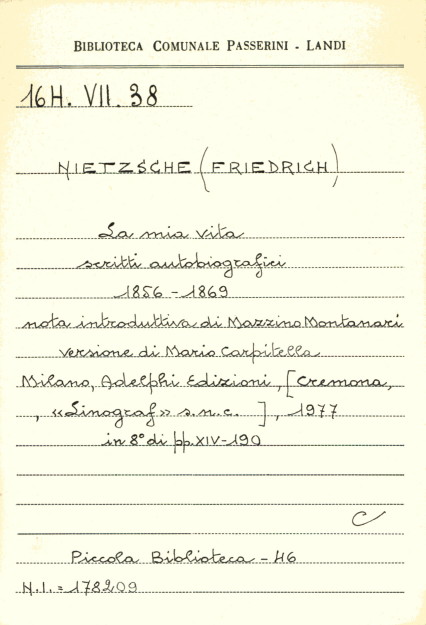 BIBLIOTECA COMUNALE PASSERINI - LANDI
16H. VII. 38
NIETZSCHE (FRIEDRICH)
La mia vita
scritti autobiografici
1856 - 1869
nota introduttiva di Mazzino Montanari
versione di Mario Carpitella
Milano, Adelphi Edizioni, [Cremona,
, «Linograf» s.n.c. ], 1977
in 8° di pp. XIV-190
C
Piccola Biblioteca - 46
N.I. = 178209